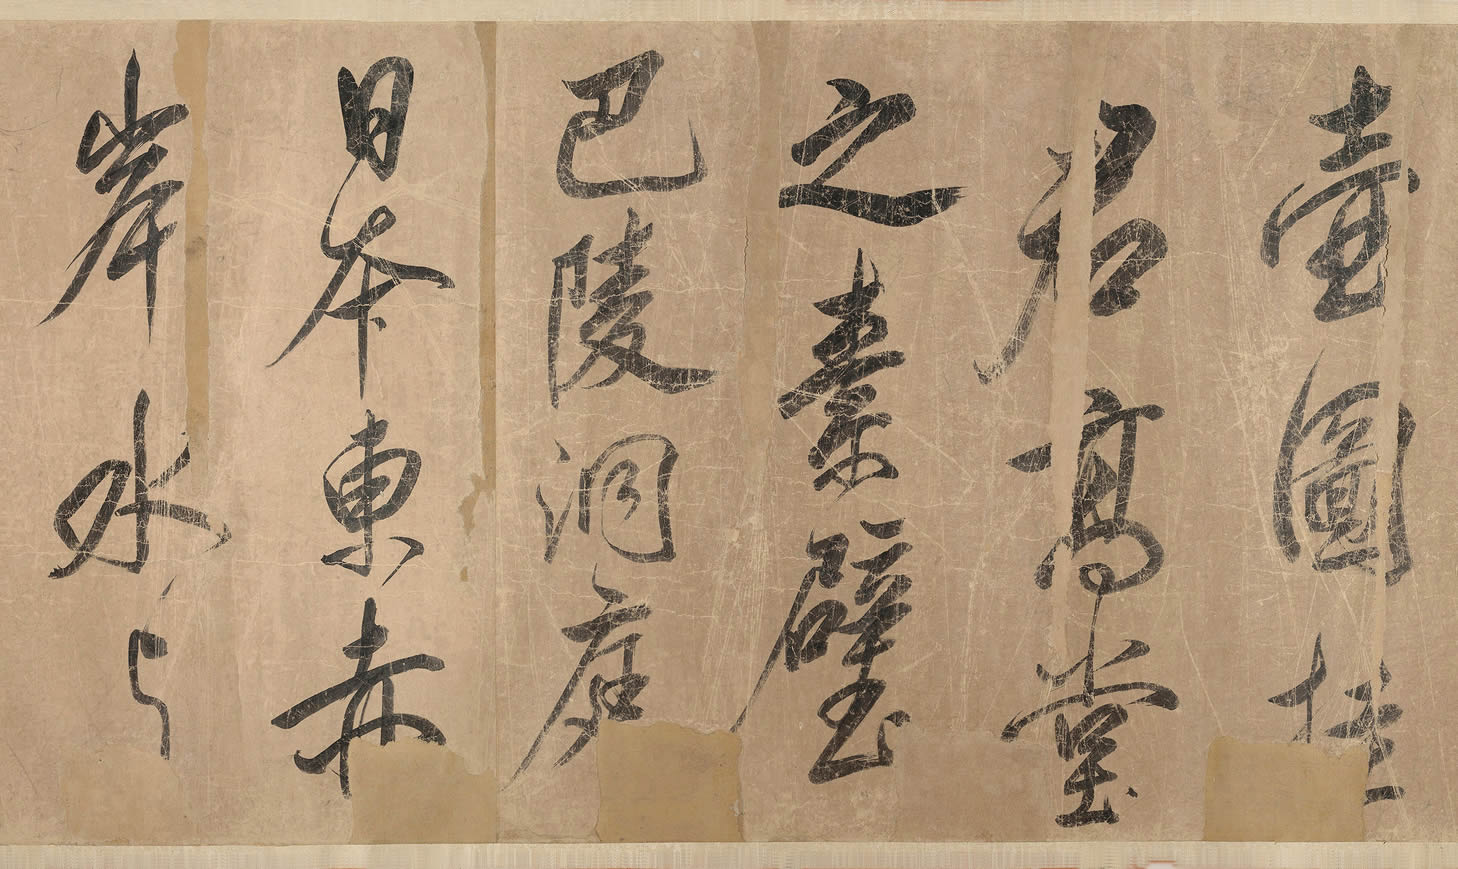 壺圖挂
君高堂
之素壁
巴陵洞庭
日本東赤
岸水與